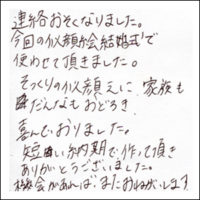 連絡おそくなりました。
今回の似顔絵結婚式で
使わせて頂きました。
そっくりの似顔えに家族も
だんなもおどろき
喜んでおりました。
短い納期で作って頂き
ありがとうございました。
機会があれば、またおねがいします